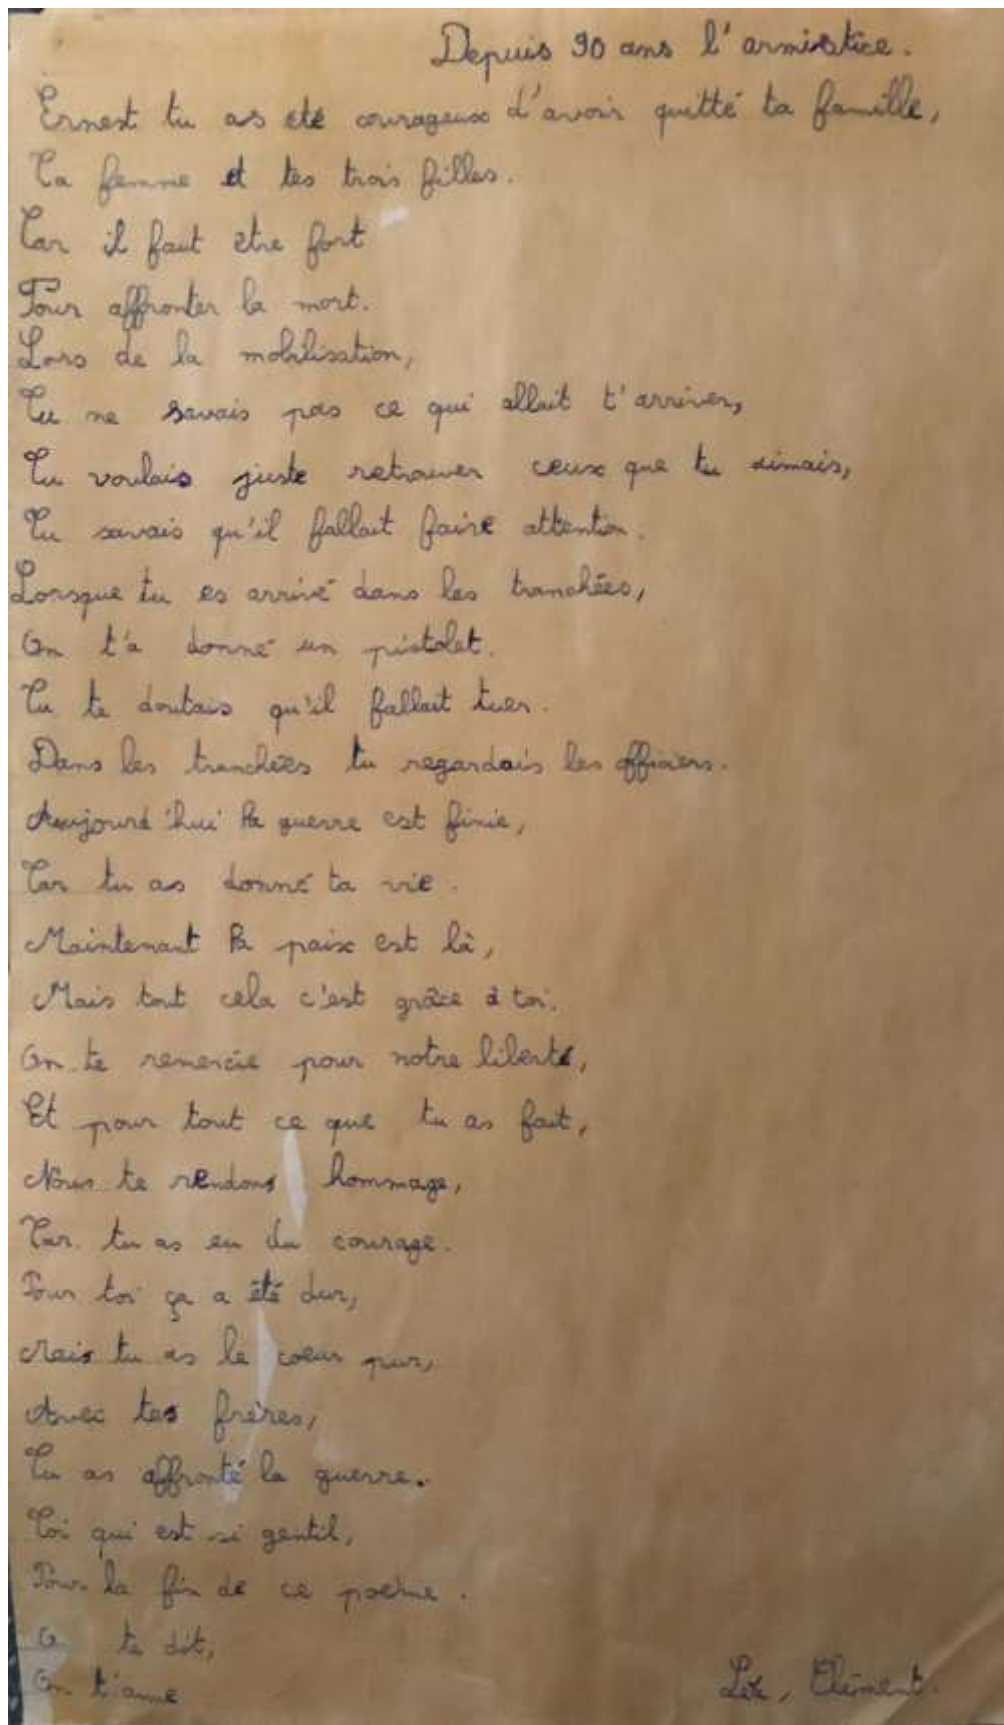 Depuis 90 ans l'armistice.
Ernest tu as été courageux d'avoir quitté ta famille,
Ta femme et tes trois filles.
Car il faut être fort
Pour affronter la mort.
Lors de la mobilisation,
Tu ne savais pas ce qui allait t'arriver,
Tu voulais juste retrouver ceux que tu aimais,
Tu savais qu'il fallait faire attention.
Lorsque tu es arrivé dans les tranchées,
On t'a donné un pistolet.
Tu te doutais qu'il fallait tuer.
Dans les tranchées tu regardais les officiers.
Aujourd'hui la guerre est finie,
Car tu as donné ta vie.
Maintenant la paix est là,
Mais tout cela c'est grâce à toi.
On te remercie pour notre liberté,
Et pour tout ce que tu as fait,
Nous te rendons hommage,
Car tu as eu du courage.
Pour toi ça a été dur,
Mais tu as le coeur pur,
Avec tes frères,
Tu as affronté la guerre.
Toi qui est si gentil,
Pour la fin de ce poème.
te dit,
On t'aime
Clément.